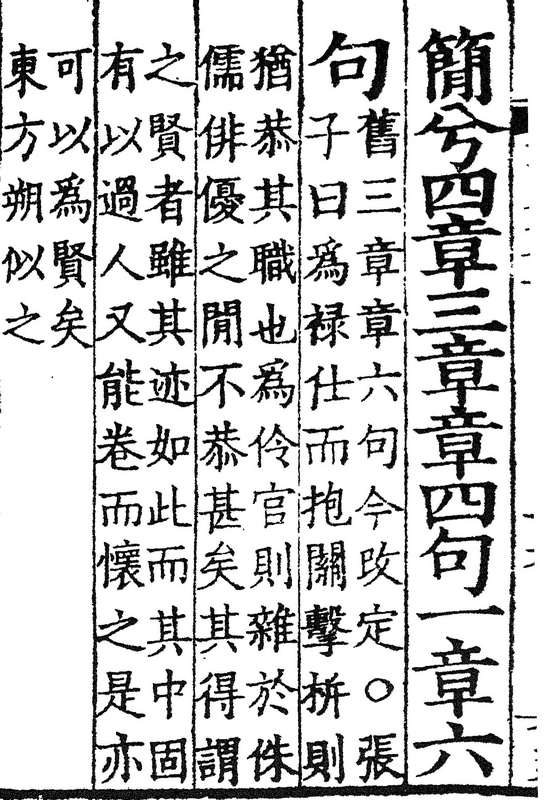 簡兮四章三章章四句一章六
句
舊三章章六句今改定○張
子曰爲禄仕而抱關擊柝則
猶恭其職也爲伶官則雜於侏
儒俳優之閒不恭甚矣其得謂
之賢者雖其迹如此而其中固
有以過人又能卷而懷之是亦
可以爲賢矣
東方朔似之